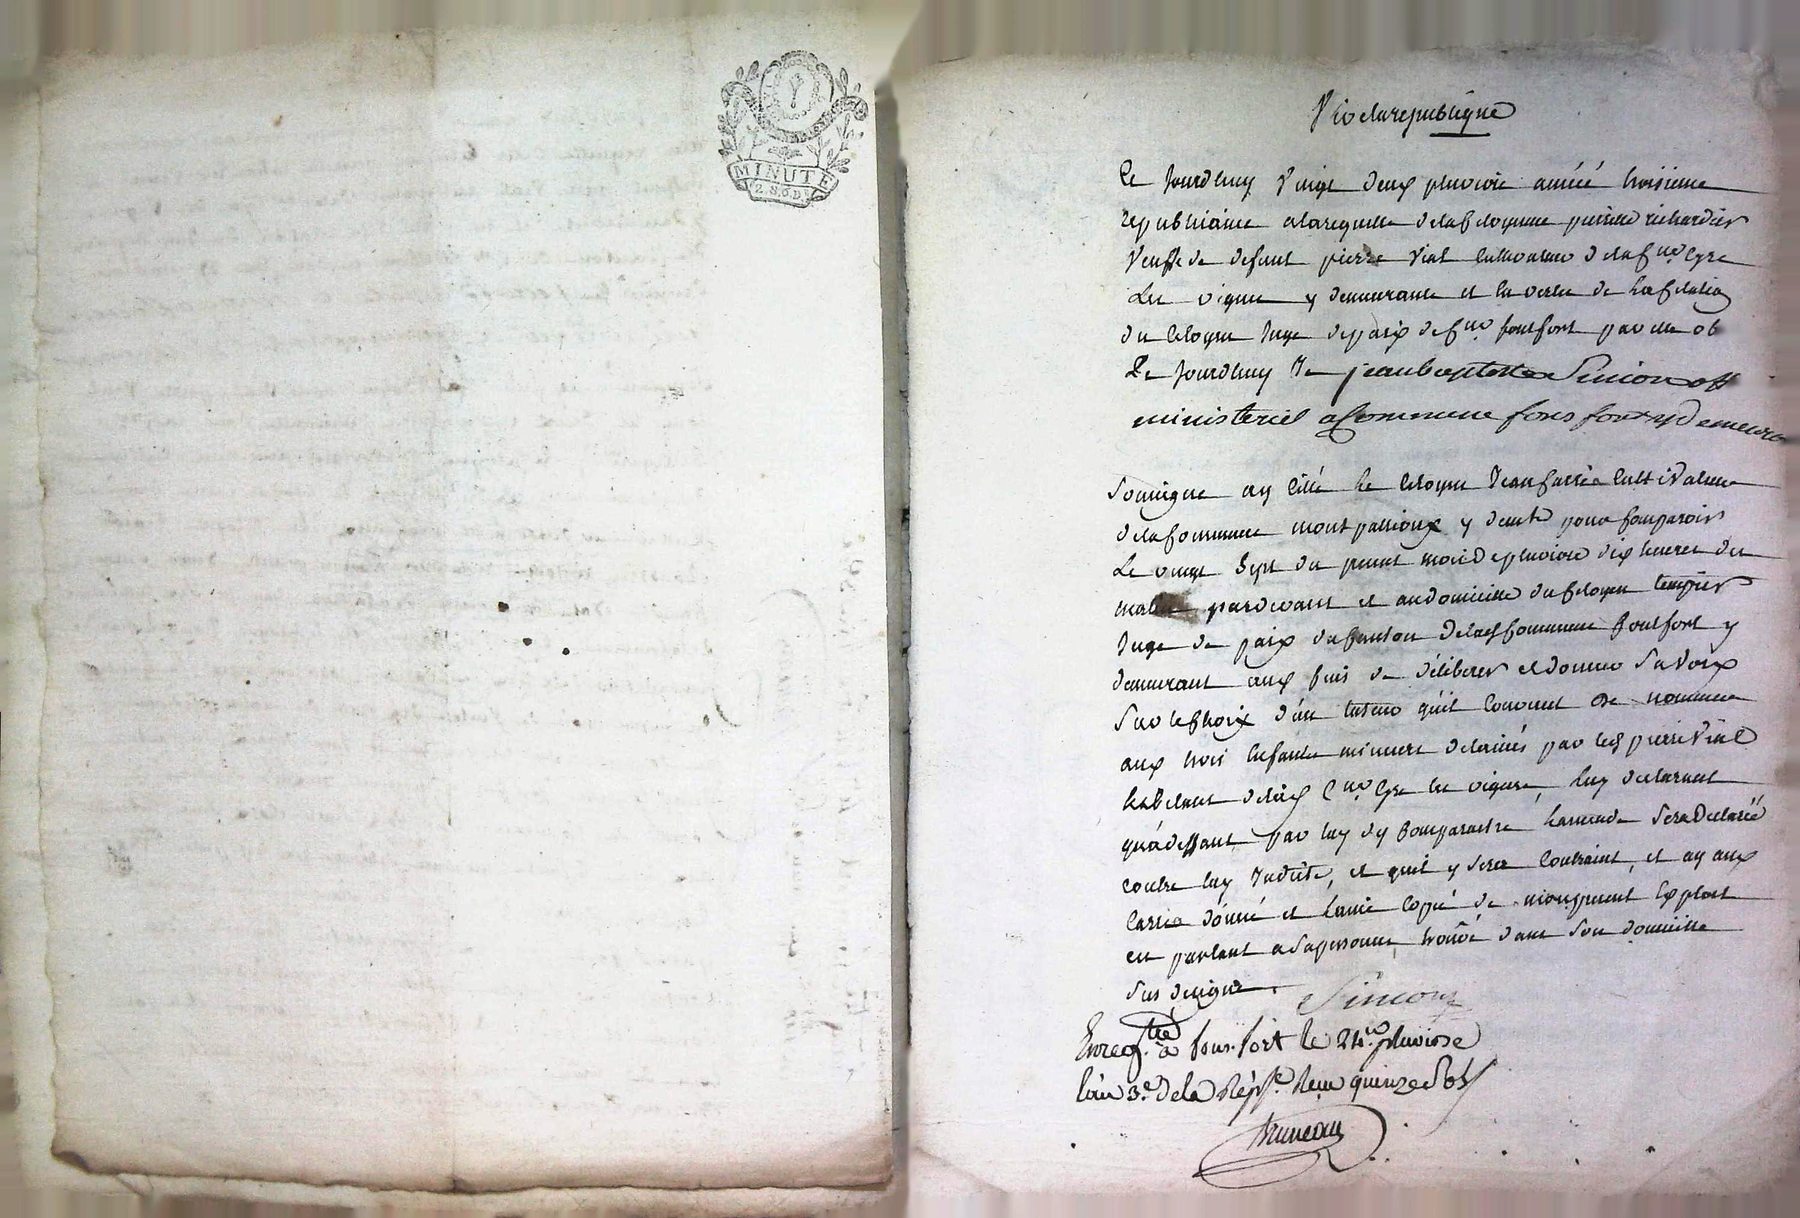 MINUTE
2. S. 6. D.
Vive la republique
Ce jourdhuy vingt deux pluviose année troisieme
republicaine a la requette de la citoyenne pierrette richardier
veuffe de deffunt pierre vial cultivateur de la cne
les vignes y demeurante et en vertu de la
du citoyen juge de paix de fontfort par elle ob
Ce jourdhuy Je jean baptiste Simon off
ministeriel a commune fons fort y demeura
soussigne ay cité le citoyen Jean cultivateur
de la commune mont y demt pour comparoir
le vingt sept du present mois de pluviose dix heures du
matin pardevant et au domicille du citoyen tempier
Juge de paix du canton de la commune fontfort y
demeurant aux fins de déliberer et donner sa voix
sur le choix d'un tuteur qu'il convient de nommer
aux trois enfants mineurs delaissés par led pierre vial
habitant de lad les vignes, luy declarant
qu'a deffaut par luy dy comparaitre, lamende sera declarée
contre luy, et quil y sera contraint, et ay aux
donné et laissé copie de mon present Exploit
en parlant a sa personne, trouvé dans son domicille
sus designé. Simon
Enregtré a fons fort le 24 pluviose
l'an 3e de la Rép. Reçu quinze sols
Bruneau